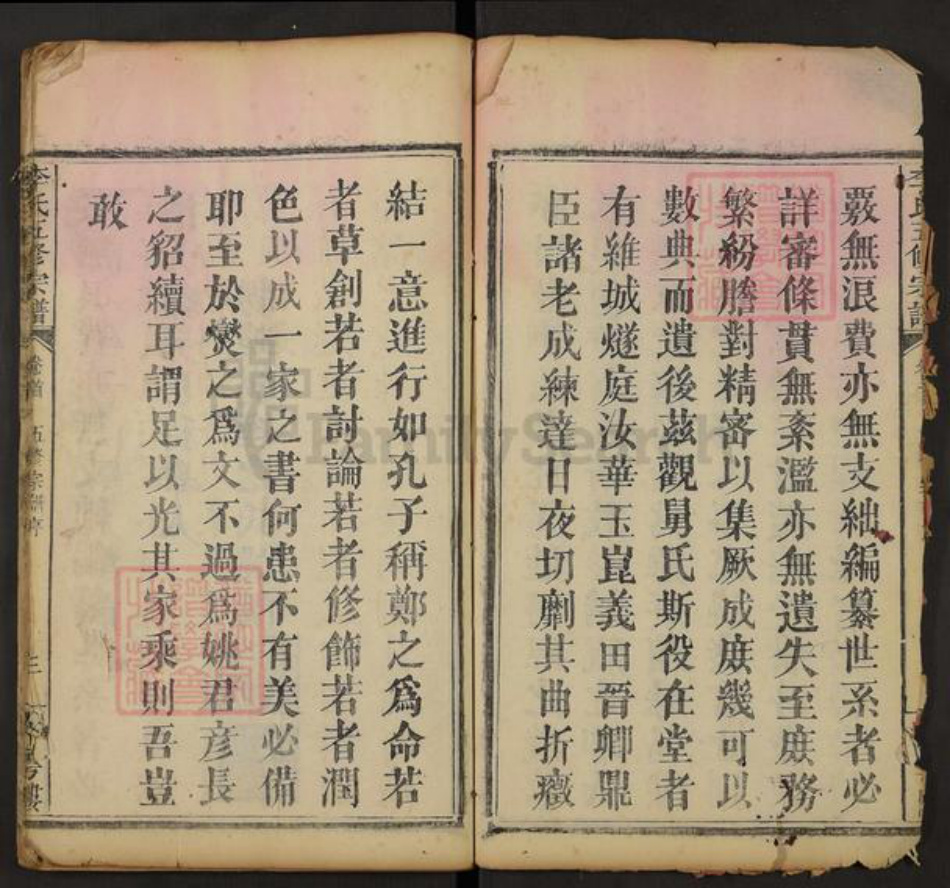 覈無浪費亦無支絀編纂世系者必
詳審條貫無紊濫亦無遺失至庶務
繁紛謄對精審以集厥成庶幾可以
數典而遺後茲觀舅氏斯役在堂者
有維城燧庭汝華玉崑義田晉卿鼎
臣諸老成練達日夜切劘其曲折癥
結一意進行如孔子稱鄭之爲命若
者草創若者討論若者修飾若者潤
色以成一家之書何患不有美必備
耶至於爕之爲文不過爲姚君彥長
之貂續耳謂足以光其家乘則吾豈
敢
李氏五修宗譜
卷首
三
FamilySearch